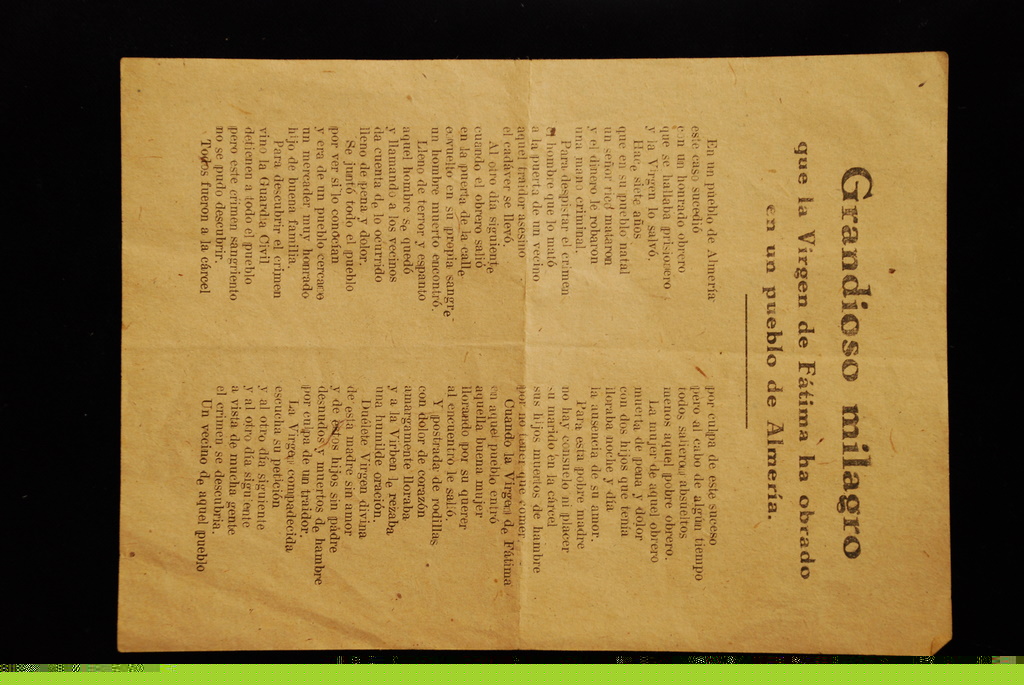 Grandioso milagro
que la Virgen de Fátima ha obrado
en un pueblo de Almería.
En un pueblo de Almería
este caso sucedió
con un honrado obrero
que se hallaba prisionero
y la Virgen lo salvó.
Hace siete años
que en su pueblo natal
un señor rico mataron
y el dinero le robaron
una mano criminal.
Para despistar el crimen
el hombre que lo mató
a la puerta de un vecino
aquel traidor asesino
el cadáver se llevó.
Al otro día siguiente
cuando el obrero salió
en la puerta de la calle
envuelto en su propia sangre
un hombre muerto encontró.
Lleno de terror y espanto
aquel hombre se quedó
y llamando a los vecinos
da cuenta de lo ocurrido
lleno de pena y dolor.
Se juntó todo el pueblo
por ver si lo conocían
y era de un pueblo cercano
un mercader muy honrado
hijo de buena familia.
Para descubrir el crimen
vino la Guardia Civil
detienen a todo el pueblo
pero este crimen sangriento
no se pudo descubrir.
Todos fueron a la cárcel
por culpa de este suceso
pero al cabo de algún tiempo
todos salieron absueltos
menos aquel pobre obrero.
La mujer de aquel obrero
muerta de pena y dolor
con dos hijos que tenía
lloraba noche y día
la ausencia de su amor.
Para esta pobre madre
no hay consuelo ni placer
su marido en la cárcel
sus hijos muertos de hambre
por no tener que comer.
Cuando la Virgen de Fátima
en aquel pueblo entró
aquella buena mujer
llorando por su querer
al encuentro le salió.
Y postrada de rodillas
con dolor de corazón
amargamente lloraba
y a la Virben le rezaba
una humilde oración.
Duélete Virgen divina
de esta madre sin amor
y de estos hijos sin padre
desnudos y muertos de hambre
por culpa de un traidor.
La Virgen compadecida
escucha su petición
y al otro día siguiente
y al otro día siguiente
a vista de mucha gente
el crimen se descubría.
Un vecino de aquel pueblo